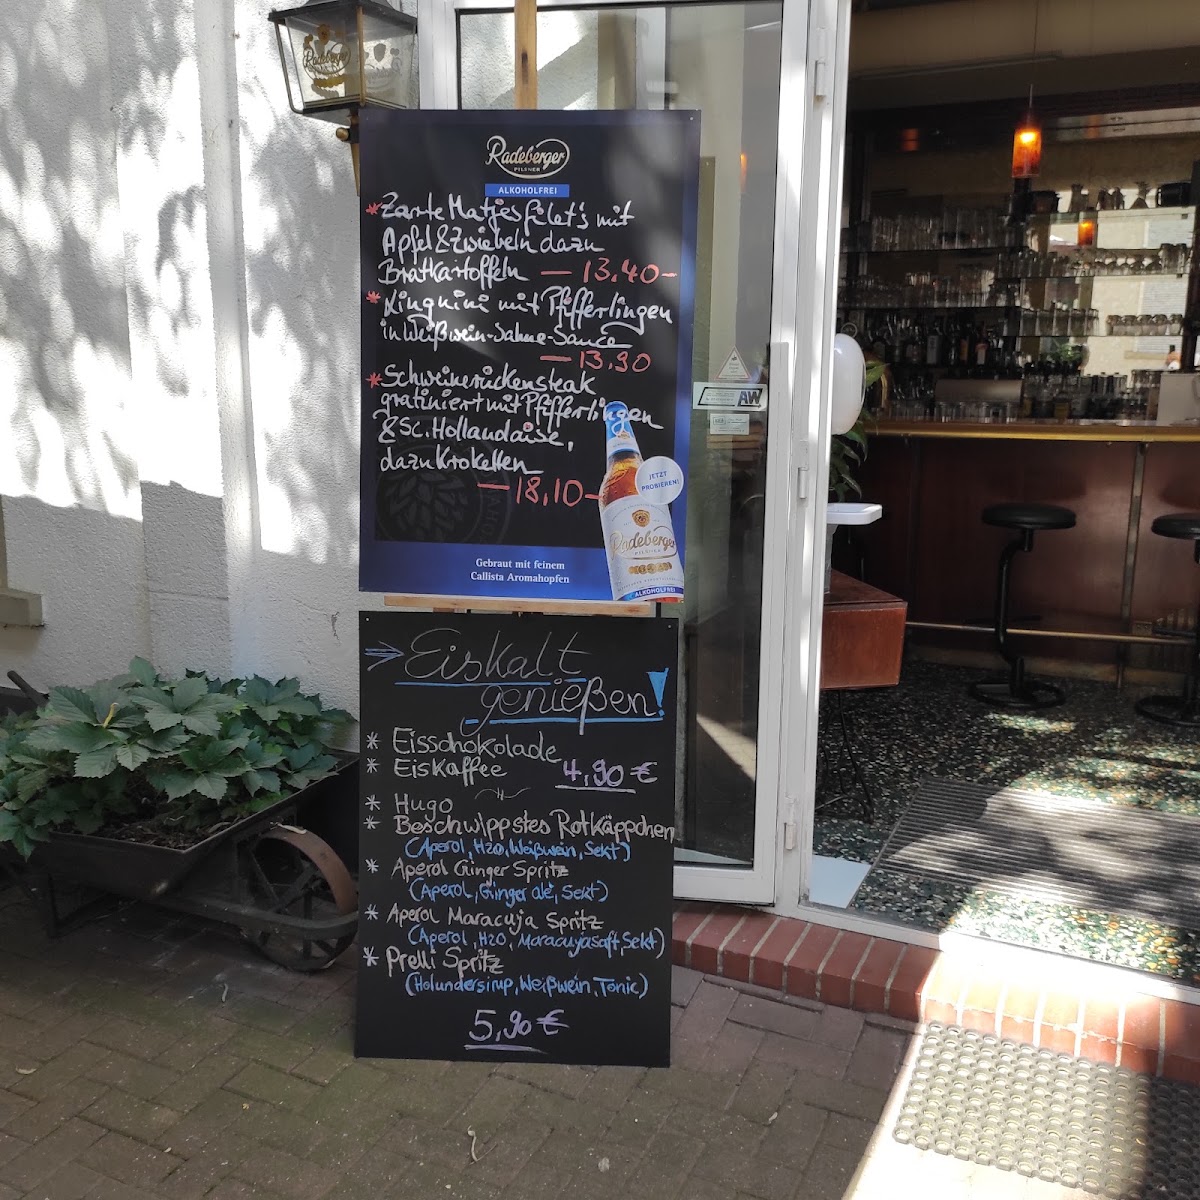 Radeberger
Radeberger
PILSNER
ALKOHOLFREI
*Zarte Matjesfilet's mit
Apfel & Zwiebeln dazu
Bratkartoffeln — 13,40-
*Linguini mit Pfifferlingen
in Weißwein-Sahne-Sauce
— 13,90
*Schweinerückensteak
gratiniert mit Pfifferlingen
& Sc. Hollandaise,
dazu Kroketten
— 18,10-
JETZT
PROBIEREN!
Radeberger
PILSNER
ALKOHOLFREI
Gebraut mit feinem
Callista Aromahopfen
AW
Eiskalt
genießen!
* Eisschokolade
* Eiskaffee 4,90 €
* Hugo
* Beschwippstes Rotkäppchen
(Aperol, H2O, Weißwein, Sekt)
* Aperol Ginger Spritz
(Aperol, Ginger ale, Sekt)
* Aperol Maracuja Spritz
(Aperol, H2O, Maracujasaft, Sekt)
* Prelli Spritz
(Holundersirup, Weißwein, Tonic)
5,90 €